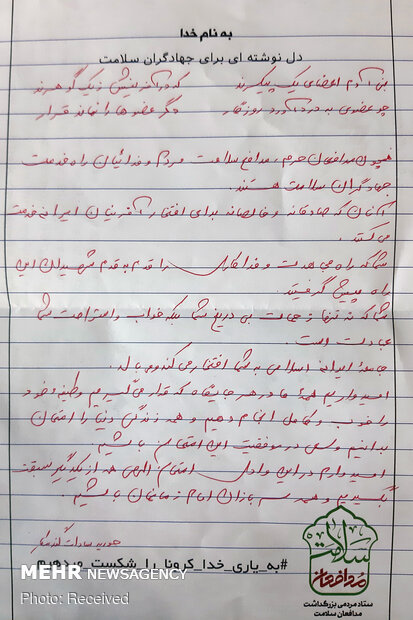 به نام خدا
دل نوشته ای برای جهادگران سلامت
بنی آدم اعضای یک پیکرند که در آفرینش ز یک گوهرند
چو عضوی به درد آورد روزگار دگر عضوها را نماند قرار
همچون مدافعان حرم، مدافع سلامت مردم و فدائیان راه خدمت
جهادگران سلامت هستند.
آنان که صادقانه و خالصانه برای افتخار آفرینان ایرانی خدمت
می کنند.
شما که راه مجاهدت و فداکاری را قدم به قدم شهیدان این
راه پیش گرفتید.
شما که نه تنها زحمات بی دریغ شما بلکه خواب و استراحت شما
عبادت است.
جامعه ایرانی اسلامی به شما افتخار می کند و می بالد.
امیدواریم همه ما در هر جایگاه که قرار می گیریم وظیفه خود
را خوب و کامل انجام دهیم و همه زندگی دنیا را امتحان
بدانیم و سعی در موفقیت این امتحان باشیم.
امیدوارم در این مراحل امتحان الهی همه از یکدیگر سبقت
بگیریم و همه سربازان امام زمانمان باشیم.
سادات
#به_یاری_خدا_کرونا_را_شکست_میدهیم
سلامت
مدافعان
ستاد مردمی بزرگداشت
مدافعان سلامت
MEHR NEWSAGENCY
Photo: Received